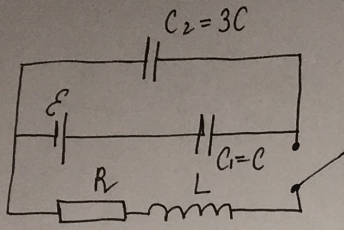 C₂ = 3C
ℰ
C₁ = C
R L